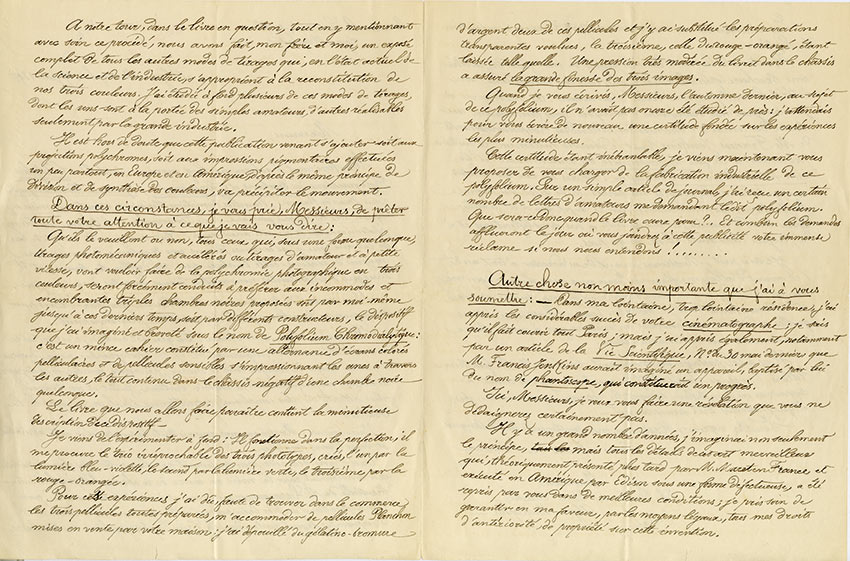 A notre tour, dans le livre en question, tout en y mentionnant
avec soin ce procédé, nous avons fait, mon frère et moi, un exposé
complet de tous les autres modes de tirages qui, en l'état actuel de
la science et de l'industrie, s'approprient à la reconstitution de
nos trois couleurs. J'ai étudié à fond plusieurs de ces modes de tirages,
dont les uns sont à la portée des simples amateurs, d'autres réalisables
seulement par la grande industrie.
Il est hors de doute que cette publication venant s'ajouter soit aux
projections polychromes, soit aux impressions pigmentaires effectuées
un peu partout, en Europe et en Amérique d'après le même principe de
division et de synthèse des couleurs, va précipiter le mouvement.
Dans ces circonstances, je vous prie, Messieurs, de prêter
toute votre attention à ce que je vais vous dire :
Qu'ils le veuillent ou non, tous ceux qui, sous une forme quelconque,
tirages photomécaniques et accélérés ou tirages d'amateur et à petite
vitesse, vont vouloir faire de la polychromie photographique en trois
couleurs, seront forcément conduits à préférer aux incommodes et
encombrantes triples chambres noires proposées soit par moi-même
jusqu'à ces derniers temps soit par différents constructeurs, le dispositif
que j'ai imaginé et breveté sous le nom de Polyfolium Chromodialytique :
c'est un mince cahier constitué par une alternance d'écrans colorés
pelliculaires et de pellicules sensibles s'impressionnant les unes à travers
les autres, le tout contenu dans le châssis négatif d'une chambre noire
quelconque.
Le livre que nous allons faire paraître contient la minutieuse
description de ce dispositif.
Je viens de l'expérimenter à fond : Il fonctionne dans la perfection ; il
me procure le trio irréprochable des trois phototypes, créés, l'un par la
lumière bleu-violette, le second par la lumière verte, le troisième par la
rouge-orangée.
Pour ces expériences j'ai dû, faute de trouver dans le commerce
les trois pellicules toutes préparées, m'accommoder de pellicules Planchon
mises en vente par votre maison ; j'ai dépouillé du gélatino-bromure
d'argent deux de ces pellicules et j'y ai substitué les préparations
transparentes voulues, la troisième, celle du rouge-orangé, étant
laissée telle quelle. Une pression très modérée du livret dans le châssis
a assuré la grande finesse des trois images.
Quand je vous écrivis, Messieurs, l'automne dernier, au sujet
de ce polyfolium, il n'avait pas encore été étudié de près ; j'attendais
pour vous écrire de nouveau une certitude fondée sur les expériences
les plus minutieuses.
Cette certitude étant inébranlable, je viens maintenant vous
proposer de vous charger de la fabrication industrielle de ce
polyfolium. Sur un simple article de journal, j'ai reçu un certain
nombre de lettres d'amateurs me demandant ledit polyfolium.
Que sera-ce donc quand le livre aura paru ?.. Et combien les demandes
afflueront le jour où vous joindrez à cette publicité votre immense
réclame si nous nous entendons ! . . . . . . . .
Autre chose non moins importante que j'ai à vous
soumettre : — Dans ma lointaine, trop lointaine résidence, j'ai
appris les considérables succès de votre cinématographe ; je sais
qu'il fait courir tout Paris ; mais j'ai appris également, notamment
par un article de la Vie Scientifique, No du 30 mai dernier que
M. Francis Jenkins imagine un appareil, baptisé par lui
du nom de phantoscope, qui constituerait un progrès.
Ici, Messieurs, je vais vous faire une révélation que vous ne
dédaignerez certainement pas.
Il y a un grand nombre d'années, j'imaginai non seulement
le principe, mais tous les détails de cet art merveilleux
qui, théoriquement présenté, plus tard par M. Marey en France et
exécuté en Amérique par Edison sous une forme défectueuse, a été
repris par vous dans de meilleures conditions ; je pris soin de
garantir en ma faveur, par les moyens légaux, tous mes droits
d'antériorité de propriété sur cette invention.